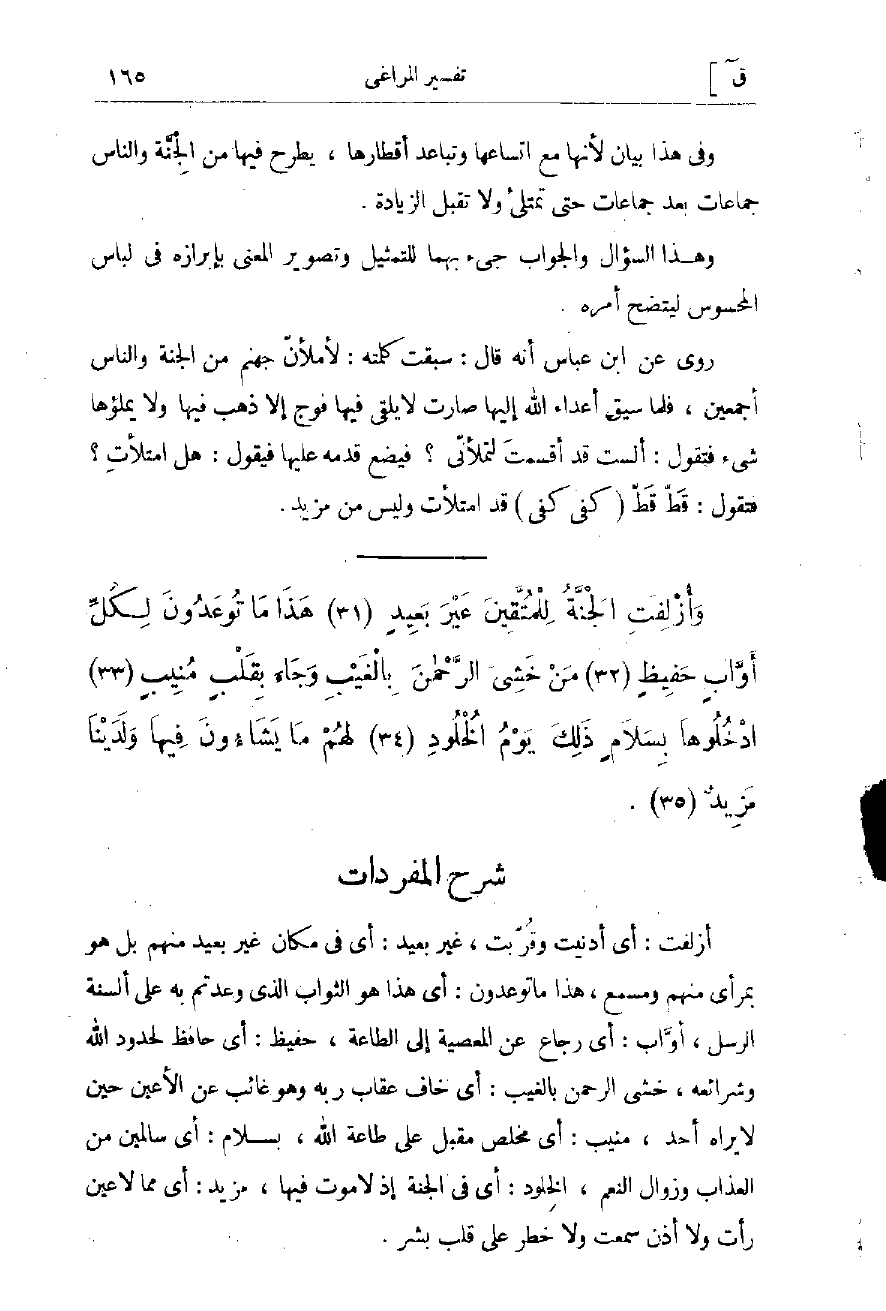 قٓ ] تفسير المراغى ١٦٥
وفى هذا بيان لأنها مع اتساعها وتباعد أقطارها ، يطرح فيها من الْجِنَّة والناس
جماعات بعد جماعات حتى تمتلئ ولا تقبل الزيادة .
وهـذا السؤال والجواب جىء بهما للتمثيل وتصوير المعنى بإبرازه فى لباس
المحسوس ليتضح أمره .
روى عن ابن عباس أنه قال : سبقت كلمته : لأملأنّ جهنم من الجنة والناس
أجمعين ، فلما سيق أعداء الله إليها صارت لايلقى فيها فوج إلا ذهب فيها ولا يملؤها
شىء فتقول : ألست قد أقسمتَ لتملأنّى ؟ فيضع قدمه عليها فيقول : هل امتلأتِ ؟
فتقول : قَطّ قَطّ ( كفى كفى ) قد امتلأت وليس من مزيد .
وَأُزْلِفَتِ الْجَنَّةُ لِلْمُتَّقِينَ غَيْرَ بَعِيدٍ (٣١) هَذَا مَا تُوعَدُونَ لِـكُلِّ
أَوَّابٍ حَفِيظٍ (٣٢) مَنْ خَشِىَ الرَّحْمٰنَ بِالْغَيْبِ وَجَاءَ بِقَلْبٍ مُنِيبٍ (٣٣)
ادْخُلُوهاَ بِسَلاَمٍ ذَلِكَ يَوْمُ الْخُلُودِ (٣٤) لَهُمْ مَا يَشَاءونَ فِيهاَ وَلَدَيْنَا
مَزِيدٌ (٣٥) .
شرح المفردات
أزلفت : أى أدنيت وقُرّبت ، غير بعيد : أى فى مكان غير بعيد منهم بل هو
بمرأى منهم ومسمع ، هذا ماتوعدون : أى هذا هو الثواب الذى وعدتم به على ألسنة
الرسل ، أوَّاب : أى رجاع عن المعصية إلى الطاعة ، حفيظ : أى حافظ لحدود الله
وشرائعه ، خشى الرحمن بالغيب : أى خاف عقاب ربه وهو غائب عن الأعين حين
لايراه أحد ، منيب : أى مخلص مقبل على طاعة الله ، بسـلام : أى سالمين من
العذاب وزوال النعم ، الخلود : أى فى الجنة إذ لاموت فيها ، مزيد : أى مما لاعين
رأت ولا أذن سمعت ولا خطر على قلب بشر .